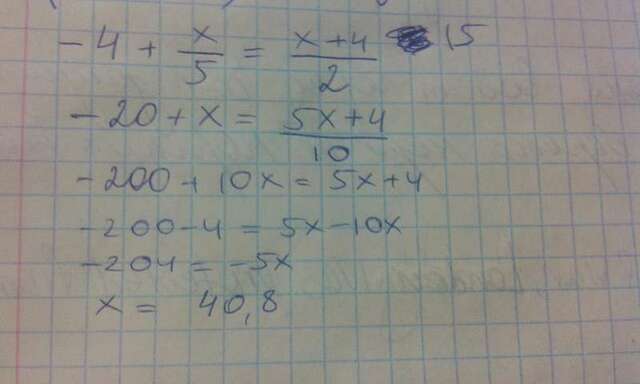 -4 + x/5 = (x+4)/2 15
-20 + x = (5x+4)/10
-200 + 10x = 5x+4
-200-4 = 5x-10x
-204 = -5x
x = 40,8